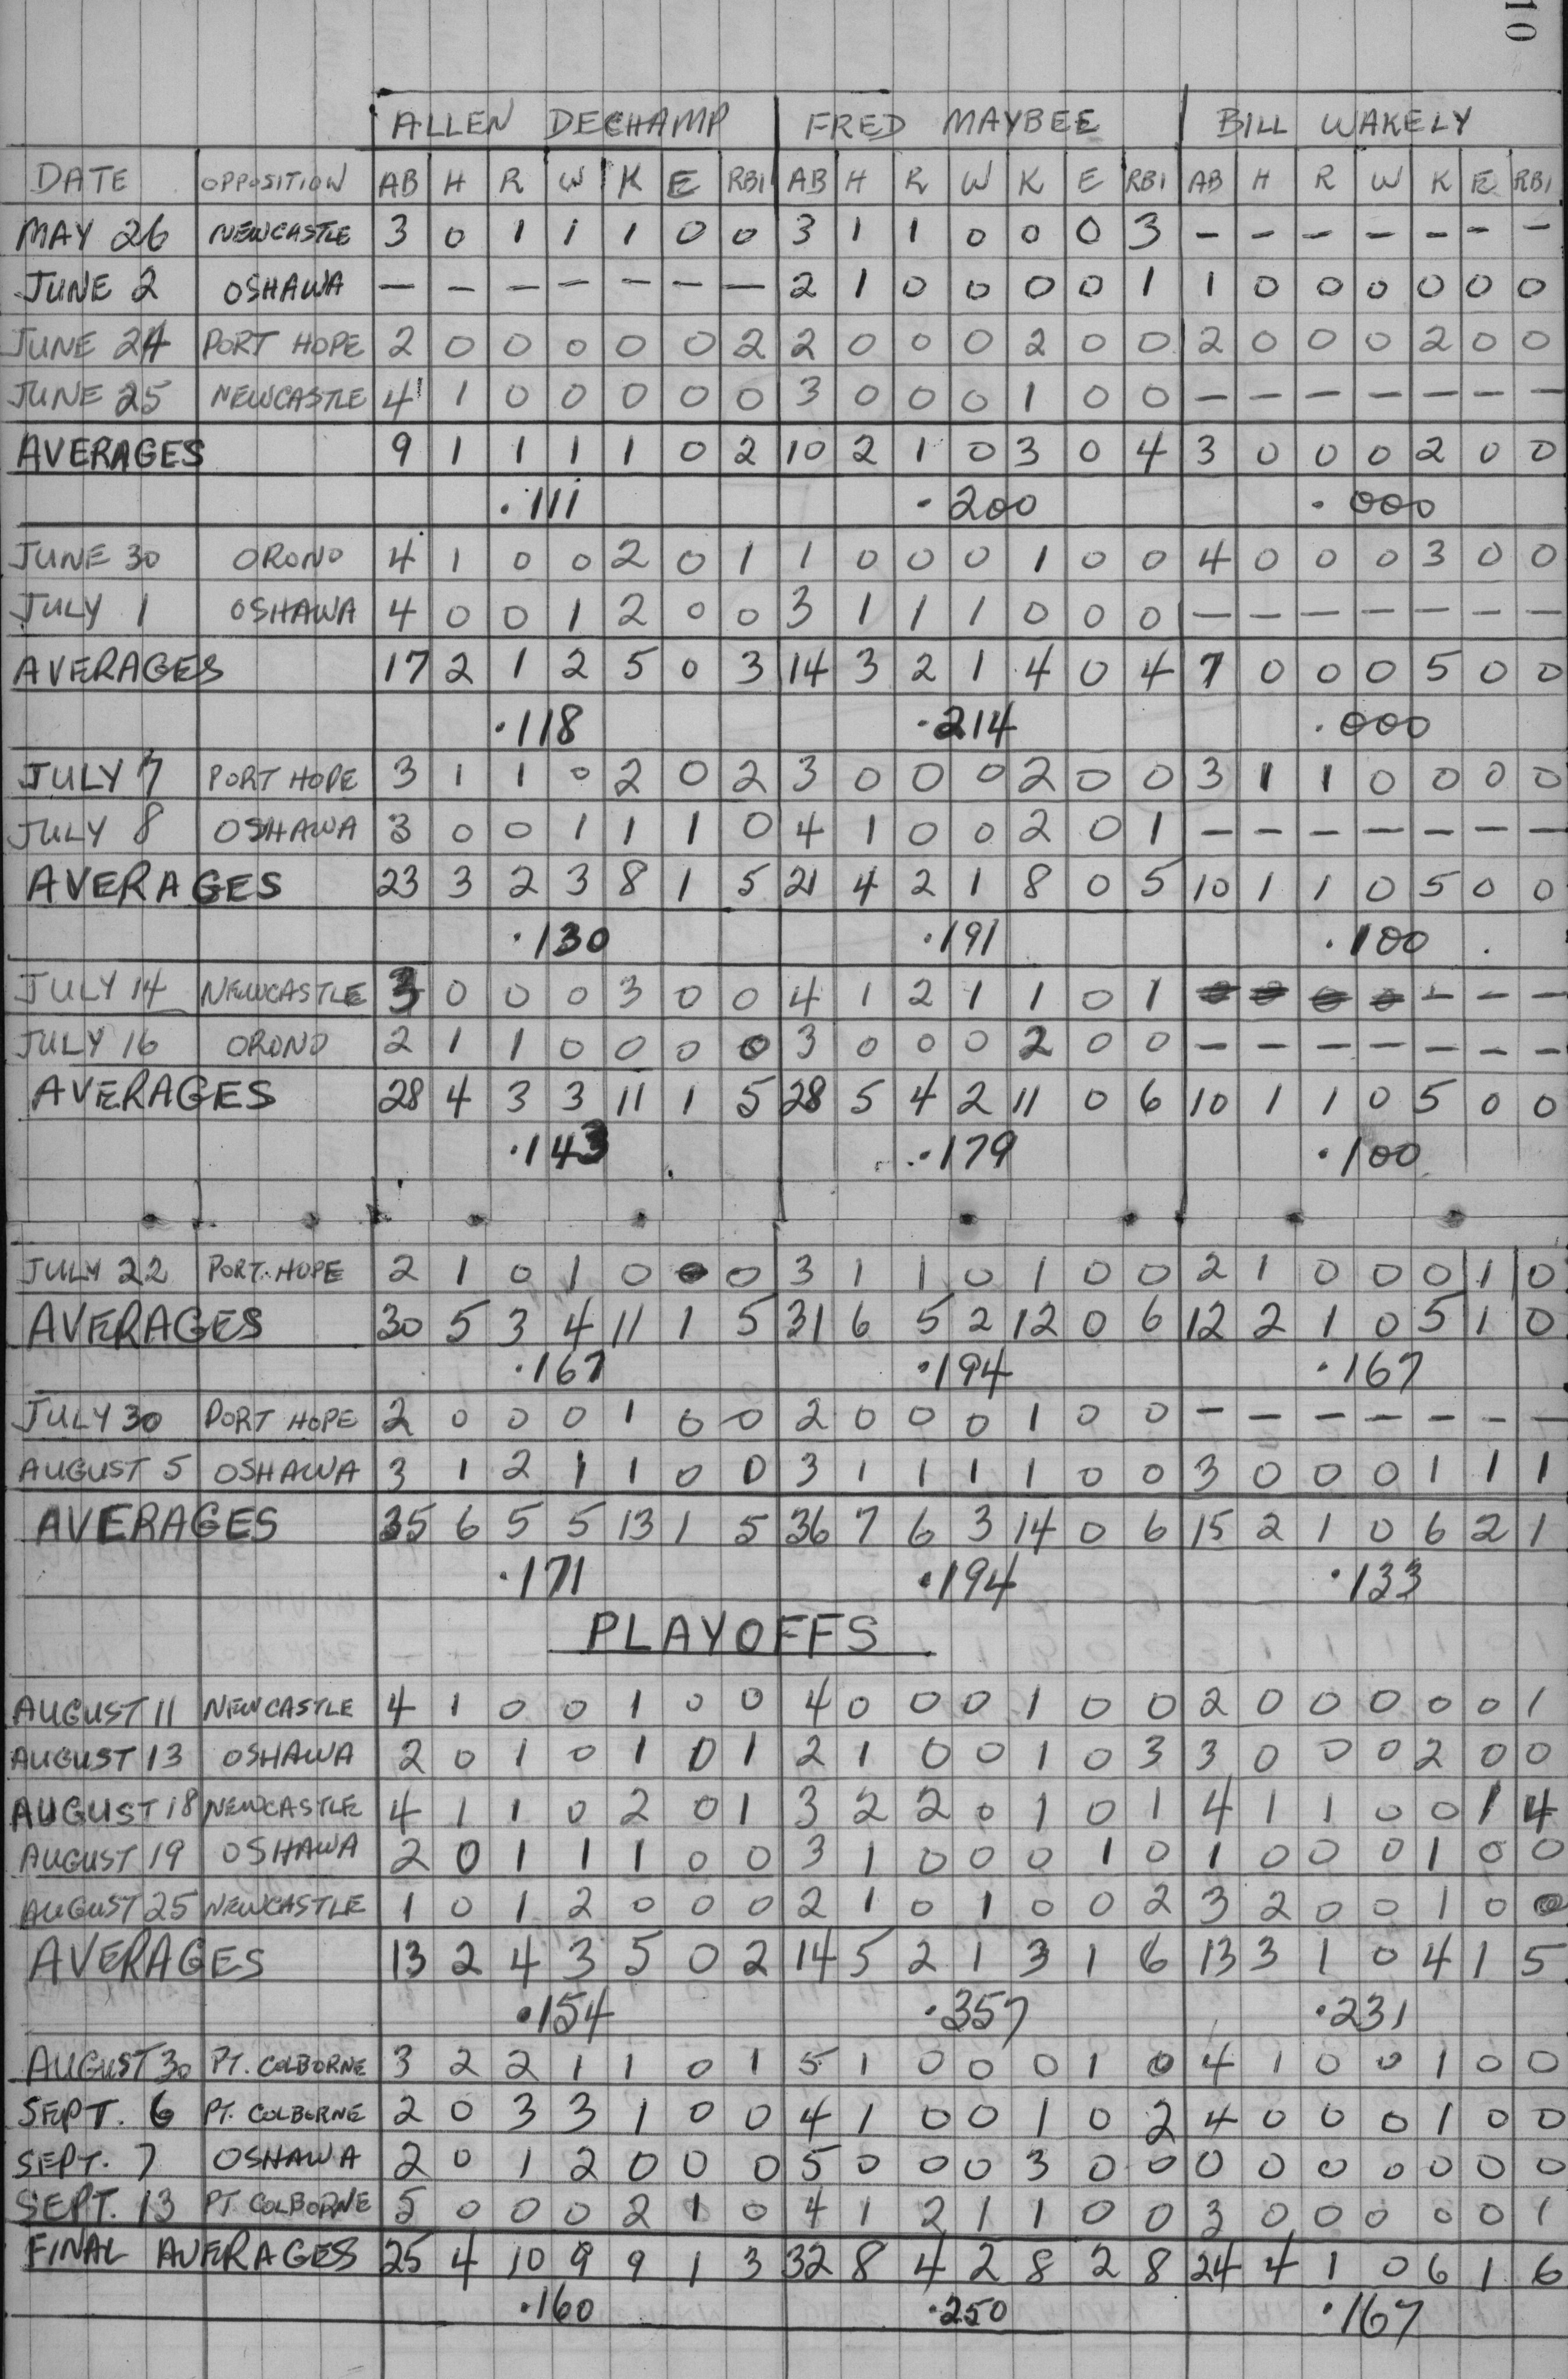 10
ALLEN DECHAMP FRED MAYBEE BILL WAKELY
DATE OPPOSITION AB H R W K E RBI AB H R W K E RBI AB H R W K E RBI
MAY 26 NEWCASTLE 3 0 1 1 1 0 0 3 1 1 0 0 0 3 - - - - - - -
JUNE 2 OSHAWA - - - - - - - 2 1 0 0 0 0 1 1 0 0 0 0 0 0
JUNE 24 PORT HOPE 2 0 0 0 0 0 2 2 0 0 0 2 0 0 2 0 0 0 2 0 0
JUNE 25 NEWCASTLE 4 1 0 0 0 0 0 3 0 0 0 1 0 0 - - - - - - -
AVERAGES 9 1 1 1 1 0 2 10 2 1 0 3 0 4 3 0 0 0 2 0 0
.111 .200 .000
JUNE 30 ORONO 4 1 0 0 2 0 1 1 0 0 0 1 0 0 4 0 0 0 3 0 0
JULY 1 OSHAWA 4 0 0 1 2 0 0 3 1 1 1 0 0 0 - - - - - - -
AVERAGES 17 2 1 2 5 0 3 14 3 2 1 4 0 4 7 0 0 0 5 0 0
.118 .214 .000
JULY 7 PORT HOPE 3 1 1 0 2 0 2 3 0 0 0 2 0 0 3 1 1 0 0 0 0
JULY 8 OSHAWA 3 0 0 1 1 1 0 4 1 0 0 2 0 1 - - - - - - -
AVERAGES 23 3 2 3 8 1 5 21 4 2 1 8 0 5 10 1 1 0 5 0 0
.130 .191 .100
JULY 14 NEWCASTLE 3 0 0 0 3 0 0 4 1 2 1 1 0 1 - - - - - - -
JULY 16 ORONO 2 1 1 0 0 0 0 3 0 0 0 2 0 0 - - - - - - -
AVERAGES 28 4 3 3 11 1 5 28 5 4 2 11 0 6 10 1 1 0 5 0 0
.143 .179 .100
JULY 22 PORT HOPE 2 1 0 1 0 0 0 3 1 1 0 1 0 0 2 1 0 0 0 1 0
AVERAGES 30 5 3 4 11 1 5 31 6 5 2 12 0 6 12 2 1 0 5 1 0
.167 .194 .167
JULY 30 PORT HOPE 2 0 0 0 1 0 0 2 0 0 0 1 0 0 - - - - - - -
AUGUST 5 OSHAWA 3 1 2 1 1 0 0 3 1 1 1 1 0 0 3 0 0 0 1 1 1
AVERAGES 35 6 5 5 13 1 5 36 7 6 3 14 0 6 15 2 1 0 6 2 1
.171 .194 .133
PLAYOFFS
AUGUST 11 NEWCASTLE 4 1 0 0 1 0 0 4 0 0 0 1 0 0 2 0 0 0 0 0 1
AUGUST 13 OSHAWA 2 0 1 0 1 0 1 2 1 0 0 1 0 3 3 0 0 0 2 0 0
AUGUST 18 NEWCASTLE 4 1 1 0 2 0 1 3 2 2 0 1 0 1 4 1 1 0 0 1 4
AUGUST 19 OSHAWA 2 0 1 1 1 0 0 3 1 0 0 0 1 0 1 0 0 0 1 0 0
AUGUST 25 NEWCASTLE 1 0 1 2 0 0 0 2 1 0 1 0 0 2 3 2 0 0 1 0 0
AVERAGES 13 2 4 3 5 0 2 14 5 2 1 3 1 6 13 3 1 0 4 1 5
.154 .357 .231
AUGUST 30 PT. COLBORNE 3 2 2 1 1 0 1 5 1 0 0 0 1 0 4 1 0 0 1 0 0
SEPT. 6 PT. COLBORNE 2 0 3 3 1 0 0 4 1 0 0 1 0 2 4 0 0 0 1 0 0
SEPT. 7 OSHAWA 2 0 1 2 0 0 0 5 0 0 0 3 0 0 0 0 0 0 0 0 0
SEPT. 13 PT. COLBORNE 5 0 0 0 2 1 0 4 1 2 1 1 0 0 3 0 0 0 0 0 1
FINAL AVERAGES 25 4 10 9 9 1 3 32 8 4 2 8 2 8 24 4 1 0 6 1 6
.160 .250 .167